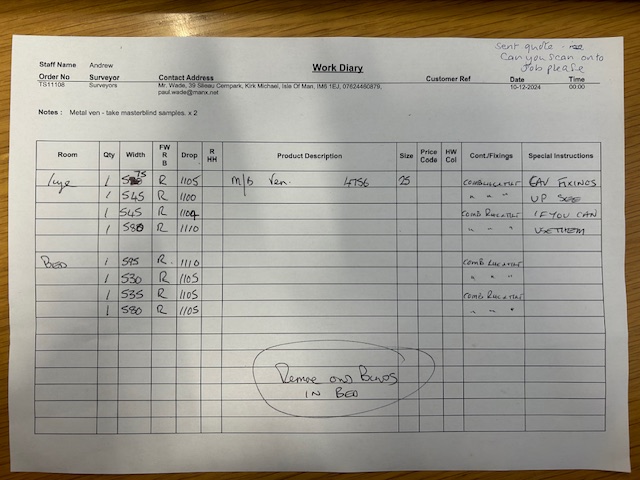 sent quote -
Can you scan onto
Job please
Staff Name Andrew
Work Diary
Order No Surveyor Contact Address Customer Ref Date Time
TS11108 Surveyors Mr. Wade, 39 Slieau Cempark, Kirk Michael, Isle Of Man, IM6 1EJ, 07624460879, 10-12-2024 00:00
paul.wade@manx.net
Notes : Metal ven - take masterblind samples. x 2
Room Qty Width FW R B Drop R HH Product Description Size Price Code HW Col Cont./Fixings Special Instructions
1 575 R 1105 M/B Ven. 4756 25 EAV FIXINGS
1 545 R 1100 " " " UP SEE
1 545 R 1104 IF YOU CAN
1 580 R 1110 " " " USE THEM
BED 1 595 R. 1110
1 530 R 1105 " " "
1 535 R 1105
1 580 R 1105 " " "
Remove Blinds
IN BED